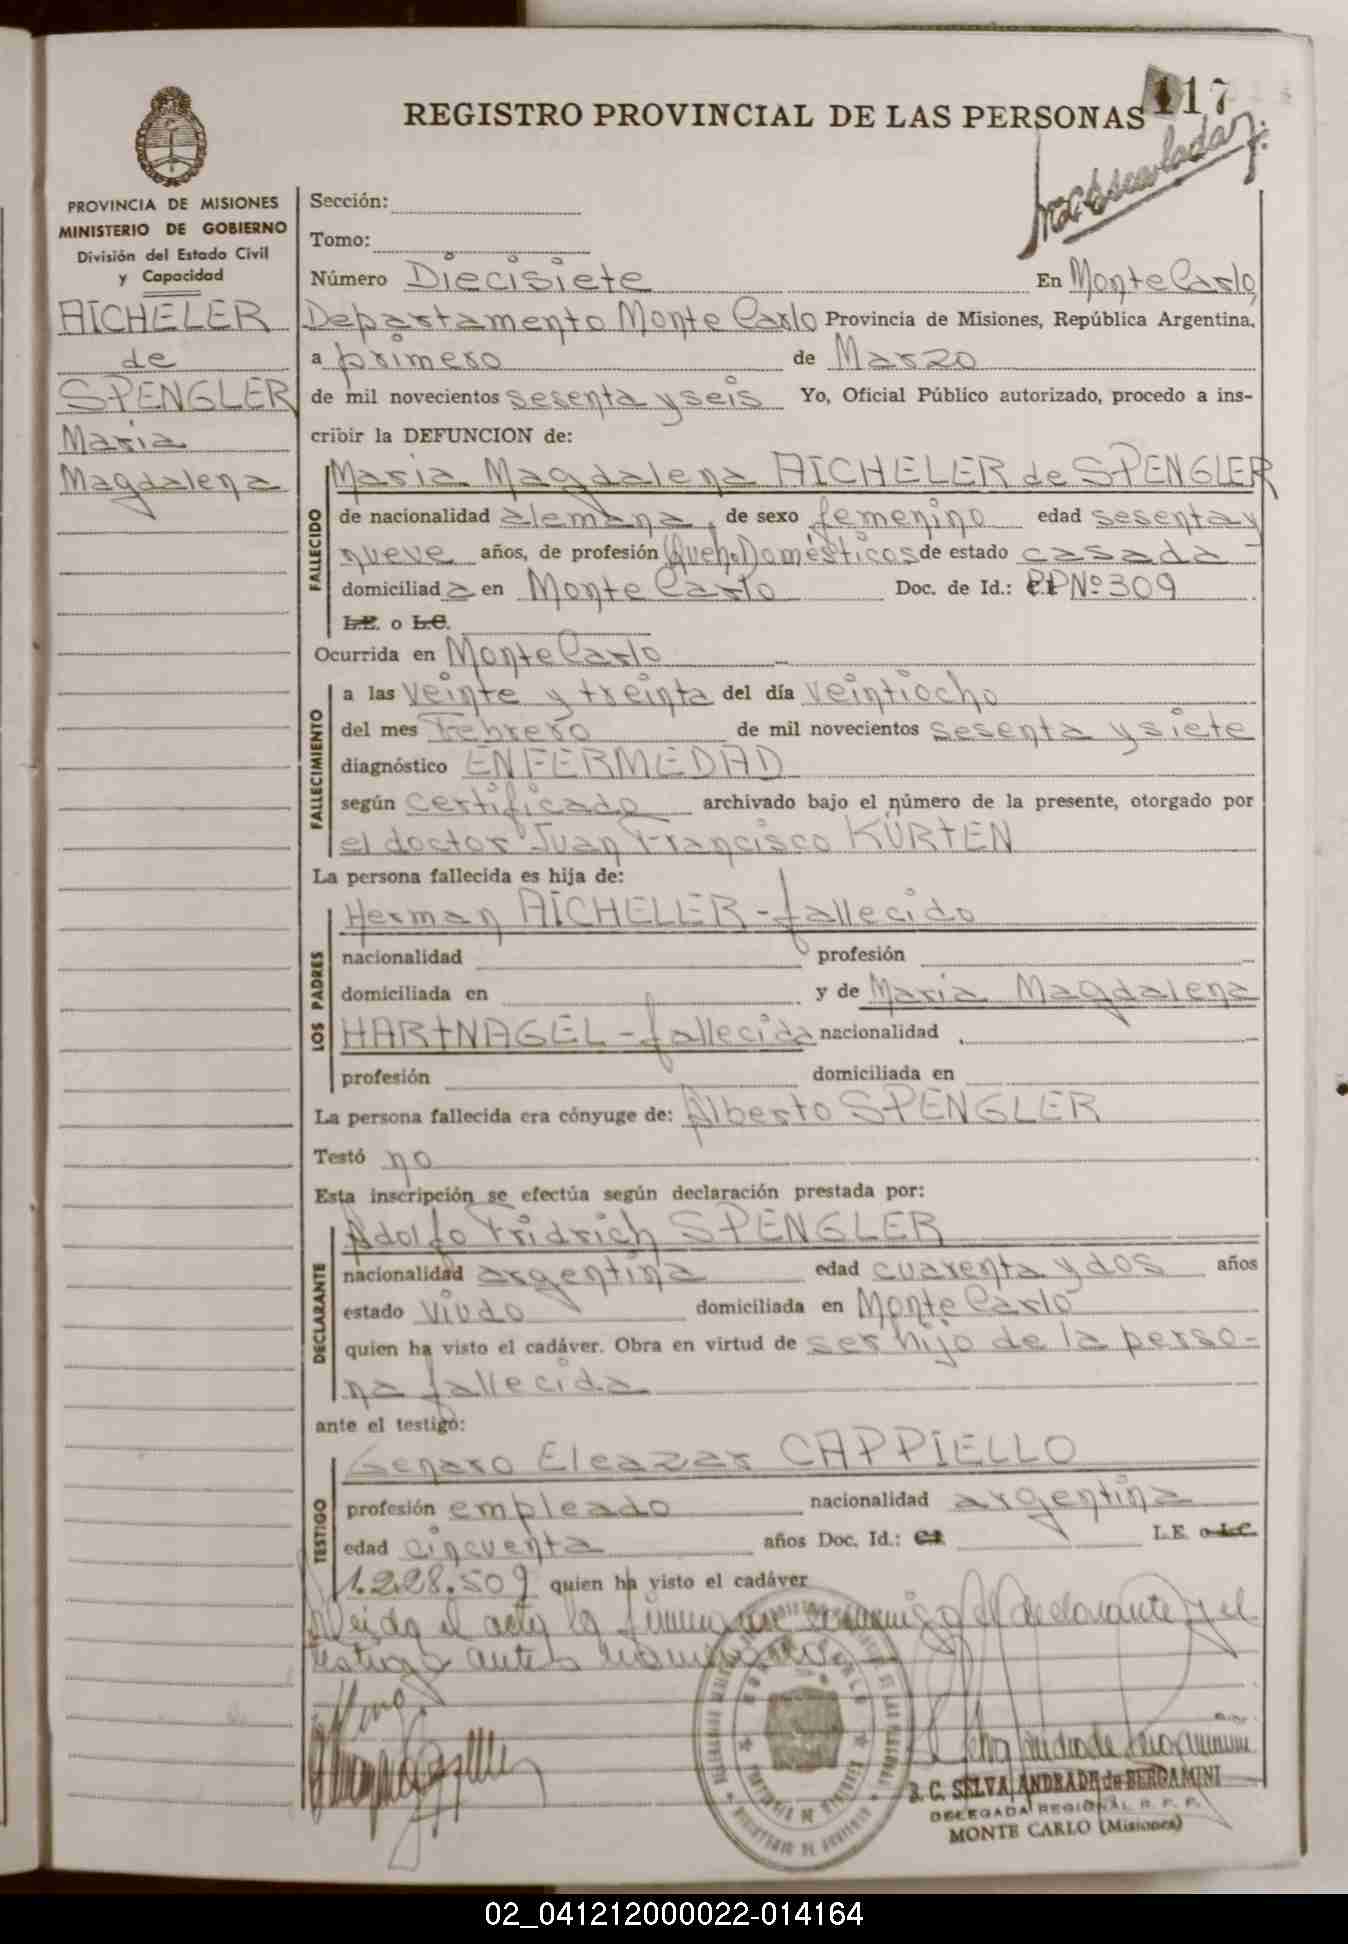 REGISTRO PROVINCIAL DE LAS PERSONAS 117
PROVINCIA DE MISIONES
MINISTERIO DE GOBIERNO
División del Estado Civil
y Capacidad
AICHELER
de
SPENGLER
Maria
Magdalena
Sección:
Tomo:
Número Diecisiete En Monte Carlo,
Departamento Monte Carlo Provincia de Misiones, República Argentina,
a primero de Marzo
de mil novecientos sesenta y seis Yo, Oficial Público autorizado, procedo a ins-
cribir la DEFUNCION de:
FALLECIDO
Maria Magdalena AICHELER de SPENGLER
de nacionalidad alemana, de sexo femenino edad sesenta y
nueve años, de profesión Queh. Domésticos de estado casada
domiciliada en Monte Carlo Doc. de Id.: Nº 309
L.E. o L.C.
Ocurrida en Monte Carlo
FALLECIMIENTO
a las veinte y treinta del día veintiocho
del mes Febrero de mil novecientos sesenta y siete
diagnóstico ENFERMEDAD
según certificado archivado bajo el número de la presente, otorgado por
el doctor Juan Francisco KÜRTEN
La persona fallecida es hija de:
LOS PADRES
Herman AICHELER - fallecido
nacionalidad profesión
domiciliada en y de Maria Magdalena
HARTNAGEL - fallecida nacionalidad
profesión domiciliada en
La persona fallecida era cónyuge de: Alberto SPENGLER
Testó no
Esta inscripción se efectúa según declaración prestada por:
DECLARANTE
Adolfo Fridrich SPENGLER
nacionalidad argentina edad cuarenta y dos años
estado viudo domiciliada en Monte Carlo
quien ha visto el cadáver. Obra en virtud de ser hijo de la perso-
na fallecida
ante el testigo:
TESTIGO
Genaro Eleazar CAPPIELLO
profesión empleado nacionalidad argentina
edad cincuenta años Doc. Id.: C.I. L.E. o L.C.
1.228.509 quien ha visto el cadáver
Leida el acta la firman conmigo el declarante y el
testigo ante
B. C. SELVA ANDRADE de BERGAMINI
DELEGADA REGIONAL R. P. P.
MONTE CARLO (Misiones)
02_041212000022-014164